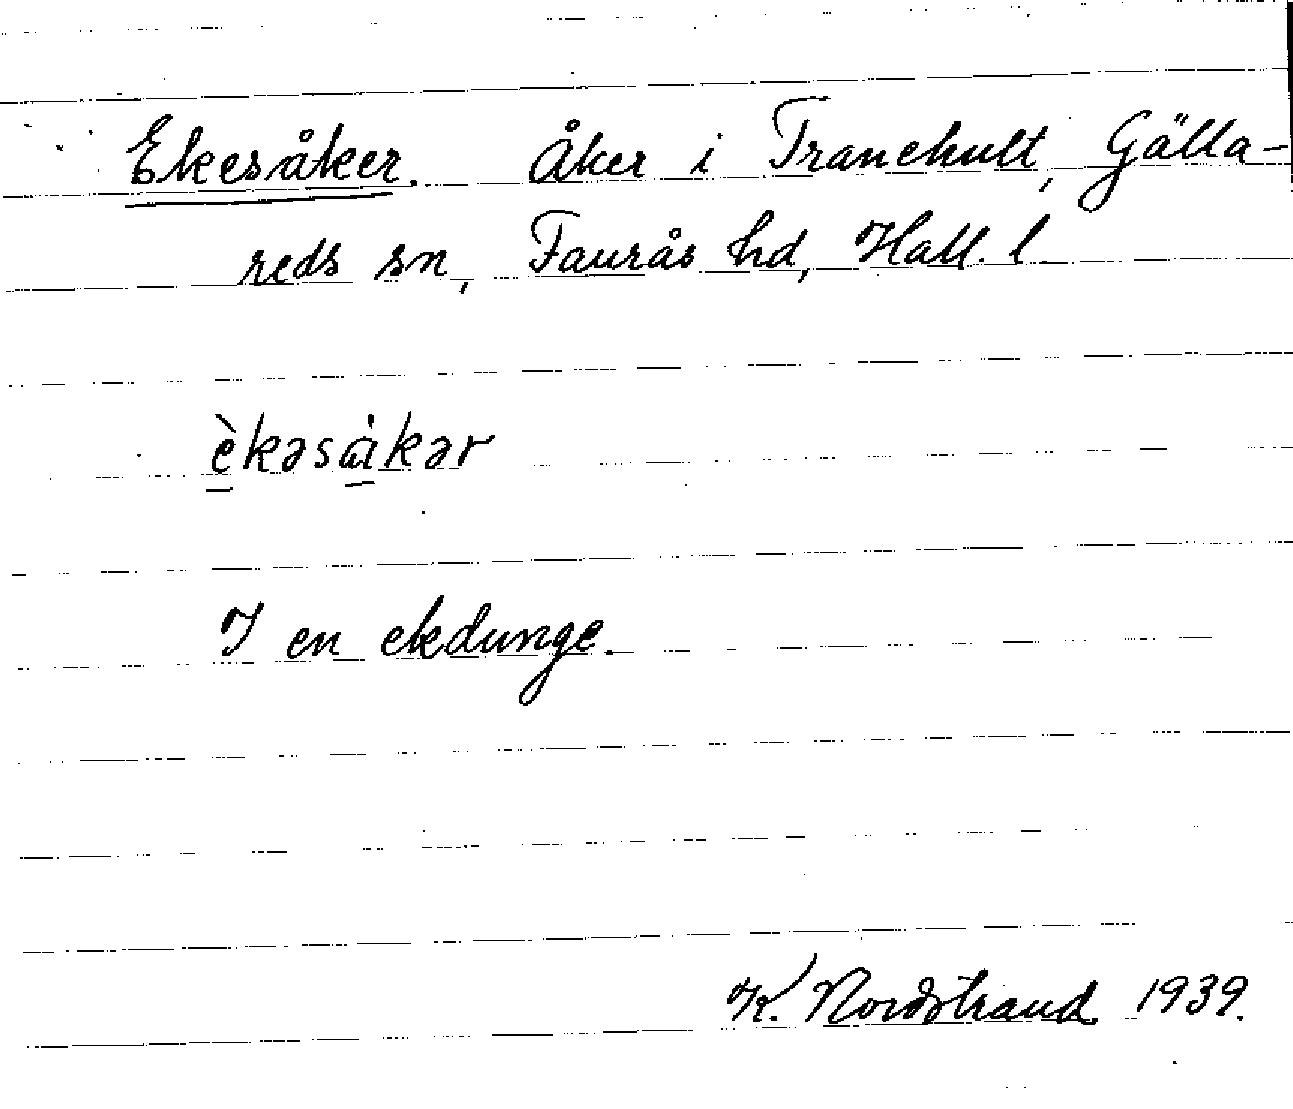 Ekesåker. Åker i Tranehult, Gälla-
reds sn, Faurås hd, Hall. l
èkəsåkər
I en ekdunge.
K. Nordstrand 1939.